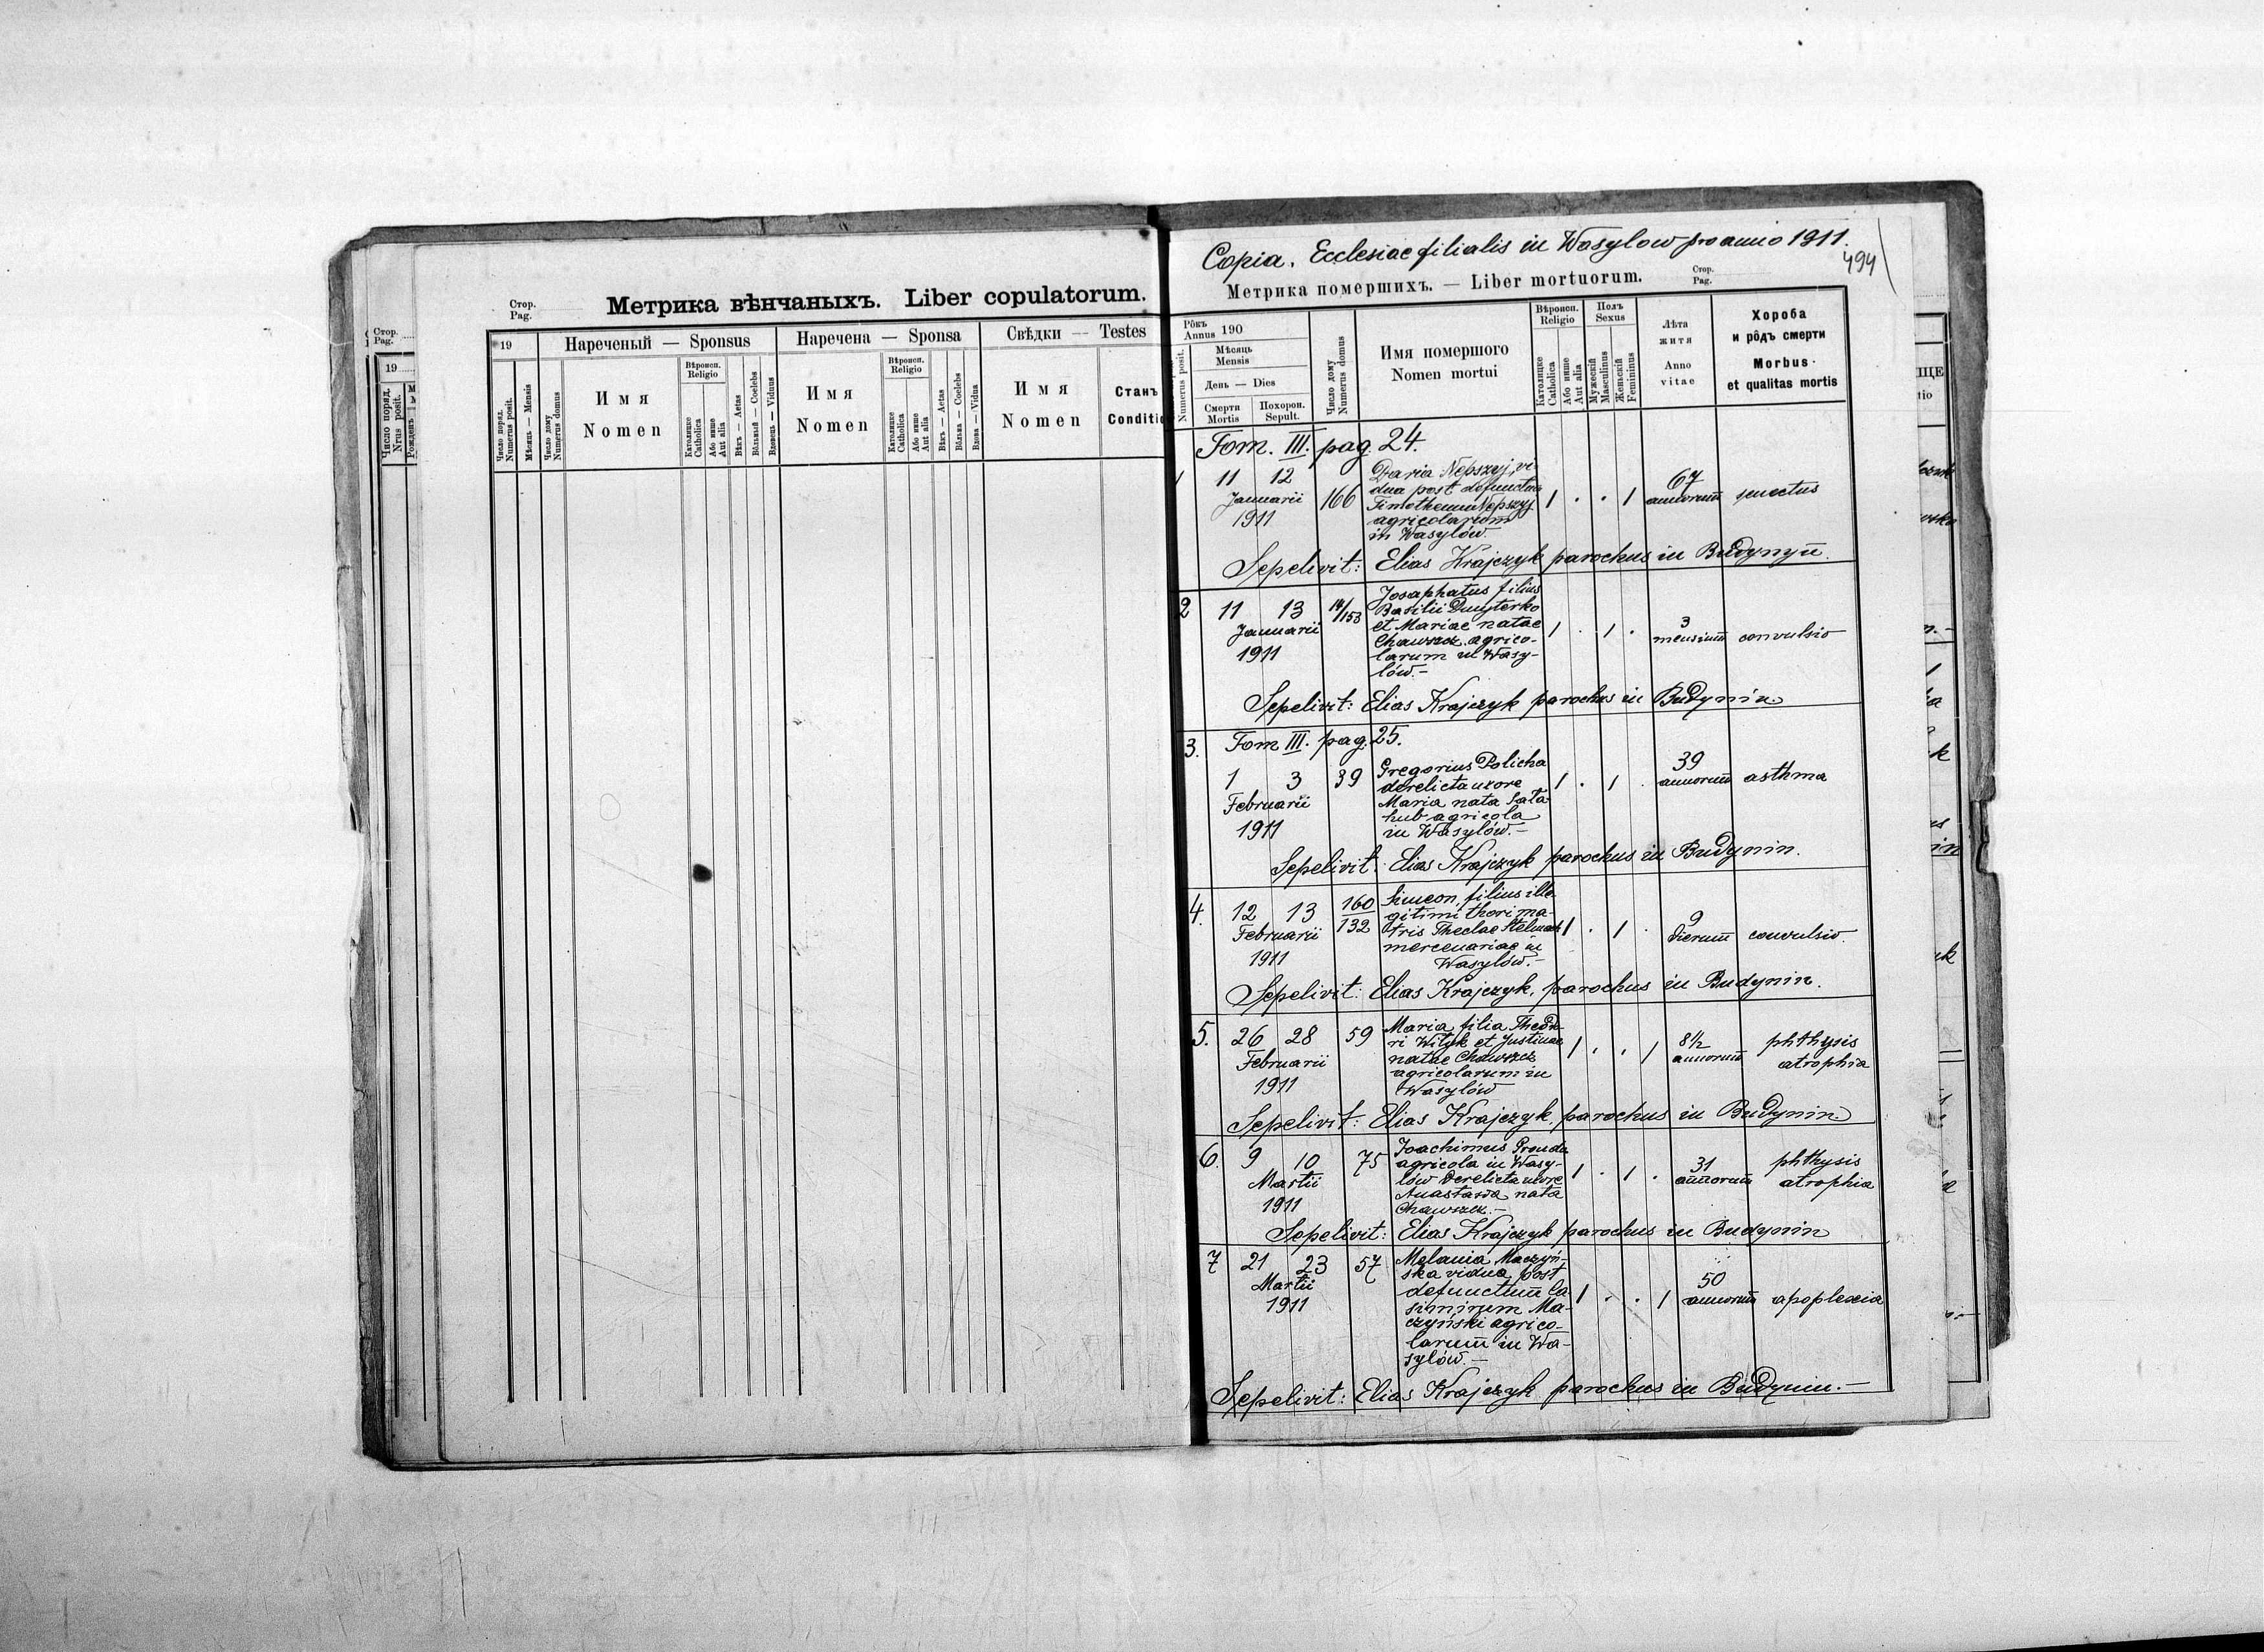 Стор.
Pag.
19
Число поряд.
Nrus posit.
Стор.
Pag.
Метрика вѣнчаныхъ. Liber copulatorum.
19
Нареченый — Sponsus
Наречена — Sponsa
Свѣдки — Testes
Число поряд.
Numerus posit.
Мѣсяць — Mensis
Число дому
Numerus domus
Имя
Nomen
Вѣроисп.
Religio
Католицке
Catholica
Або инше
Aut alia
Вѣкъ — Aetas
Вôльный — Coelebs
Вдовець — Viduus
Имя
Nomen
Вѣроисп.
Religio
Католицке
Catholica
Або инше
Aut alia
Вѣкъ — Aetas
Вôльна — Coelebs
Вдова — Vidua
Имя
Nomen
Станъ
Conditio
Copia. Ecclesiae filialis in Wasylow pro anno 1911.
494
Метрика помершихъ. — Liber mortuorum.
Стор.
Pag.
Numerus posit.
Рôкъ
Annus 190
Мѣсяць
Mensis
День — Dies
Смерти
Mortis
Похорон.
Sepult.
Число дому
Numerus domus
Имя помершого
Nomen mortui
Вѣроисп.
Religio
Католицке
Catholica
Або инше
Aut alia
Полъ
Sexus
Мужескій
Masculinus
Женьскій
Femininus
Лѣта
житя
Anno
vitae
Хороба
и рôдъ смерти
Morbus
et qualitas mortis
Tom. III. pag. 24.
1 11 12 Januarii 1911 166
Daria Nepszyj, vi-
dua post defunctum
Timotheum Nepszyj
agricolarum
in Wasylów.
1 . . 1 67 annorum senectus
Sepelivit: Elias Krajczyk parochus in Budynyn.
2 11 13 Januarii 1911 14/153
Josaphatus filius
Basilii Dmyterko
et Mariae natae
Chawszcz agrico-
larum in Wasy-
lów.-
1 . 1 . 3 mensium convulsio
Sepelivit: Elias Krajczyk parochus in Budynin.
3. Tom III. pag. 25.
1 3 Februarii 1911 39
Gregorius Policha
derelicta uxore
Maria nata Sata
hub agricola
in Wasylów.-
1 . 1 . 39 annorum asthma
Sepelivit: Elias Krajczyk parochus in Budynin.
4. 12 13 Februarii 1911 160/132
Simeon, filius ille-
gitimi thori ma-
tris Theclae Stelmach
mercenariae in
Wasylów.-
1 . 1 . 9 dierum convulsio.
Sepelivit: Elias Krajczyk, parochus in Budynin.
5. 26 28 Februarii 1911 59
Maria, filia Theodo-
ri Wityk et Justinae
natae Chawszcz
agricolarum in
Wasylów
1 . . 1 8½ annorum phthysis
atrophia
Sepelivit: Elias Krajczyk, parochus in Budynin.
6. 9 10 Martii 1911 75
Joachimus Prouda
agricola in Wasy-
lów derelicta uxore
Anastasia nata
Chawszcz.-
1 . 1 . 31 annorum phthysis
atrophia
Sepelivit: Elias Krajczyk parochus in Budynin
7 21 23 Martii 1911 57
Melania Maczyń-
ska vidua post
defunctum Ca
simirum Ma-
czyński agrico-
larum in Wa-
sylów.-
1 . . 1 50 annorum apoplexia
Sepelivit: Elias Krajczyk parochus in Budynin.-